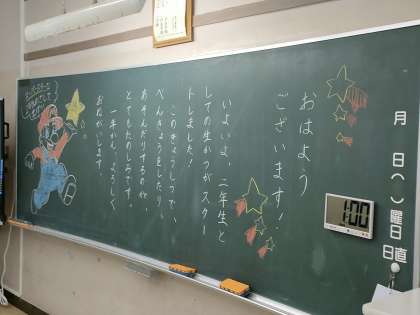 おはよう
ございます!
いよいよ、二年生と
しての生かつがスター
トしました!
このきょうしつで、
べんきょうをしたり、
あそんだりするのが、
とてもたのしみです。
一年かん、よろしく
おねがいします。
月 日( )曜日
日直
1:00